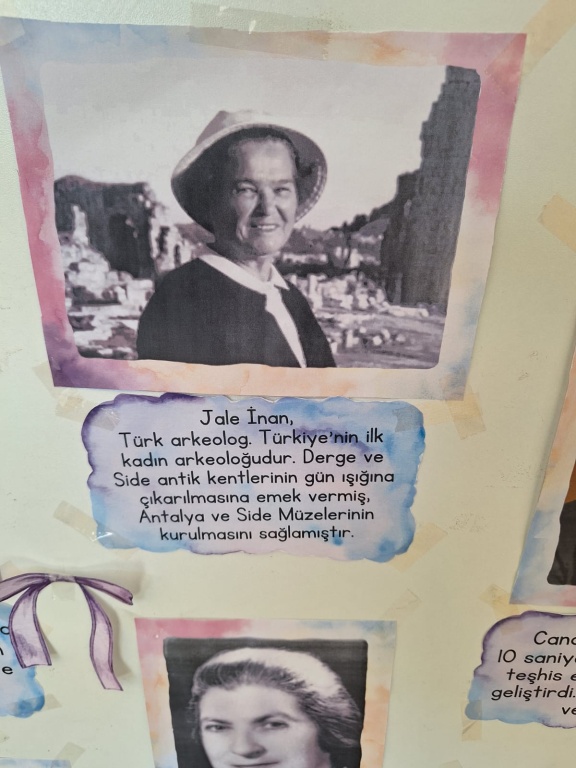 Jale İnan,
Türk arkeolog. Türkiye'nin ilk
kadın arkeoloğudur. Derge ve
Side antik kentlerinin gün ışığına
çıkarılmasına emek vermiş,
Antalya ve Side Müzelerinin
kurulmasını sağlamıştır.
10 saniy
teşhis e
geliştirdi.
ve